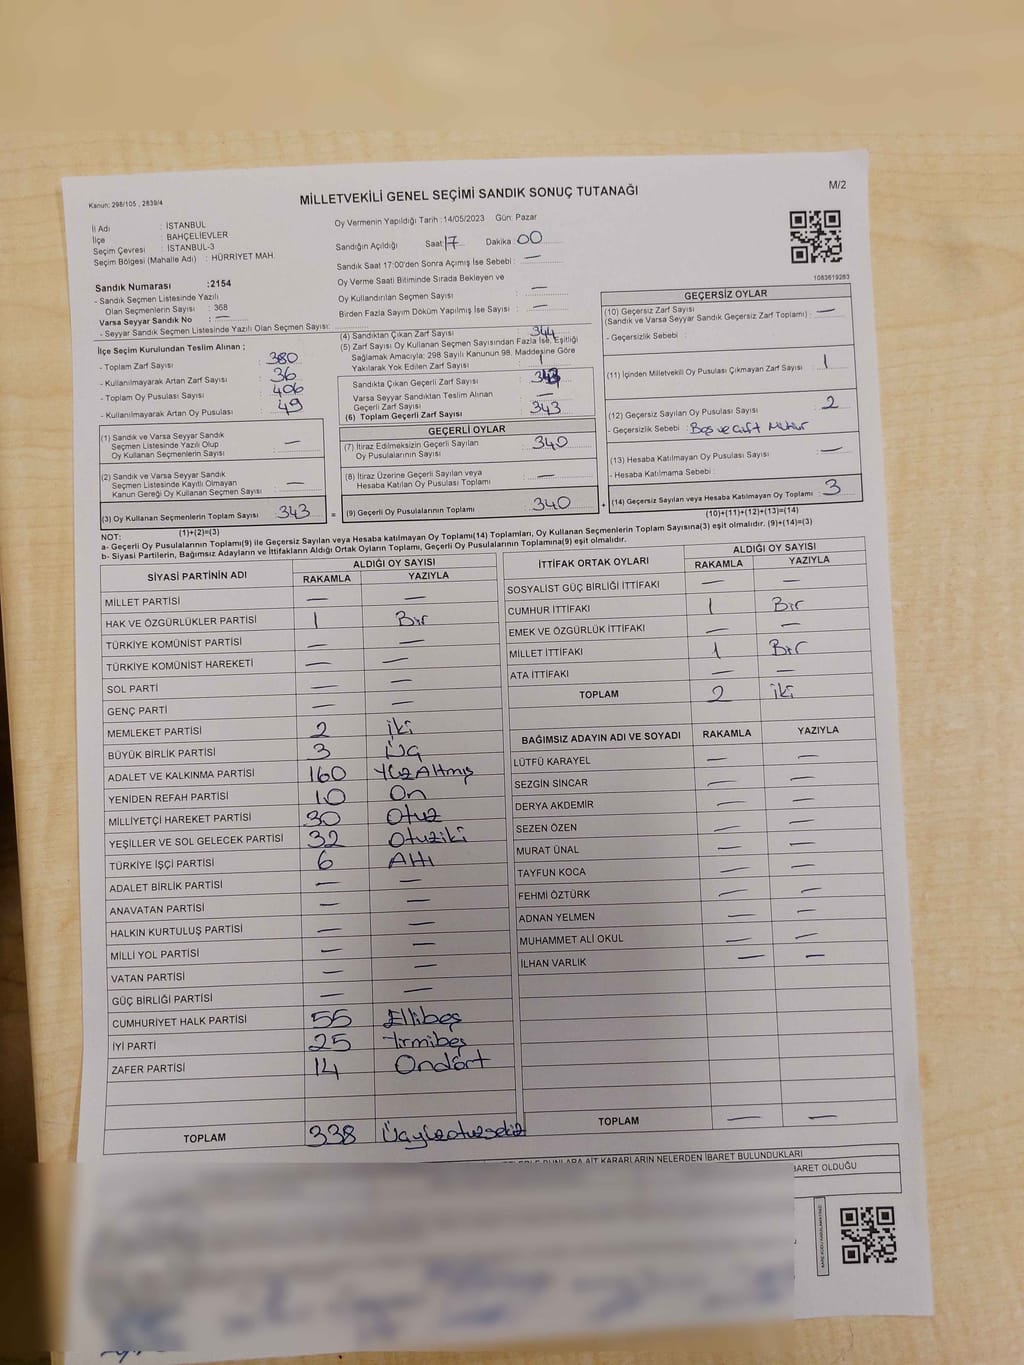 Kanun: 298/105 , 2839/4
MİLLETVEKİLİ GENEL SEÇİMİ SANDIK SONUÇ TUTANAĞI
M/2
İl Adı : İSTANBUL
İlçe : BAHÇELİEVLER
Seçim Çevresi : İSTANBUL-3
Seçim Bölgesi (Mahalle Adı) : HÜRRİYET MAH.
Oy Vermenin Yapıldığı Tarih :14/05/2023 Gün: Pazar
Sandığın Açıldığı Saat: 17 Dakika: 00
Sandık Saat 17:00'den Sonra Açımış İse Sebebi : —
Oy Verme Saati Bitiminde Sırada Bekleyen ve
Oy Kullandırılan Seçmen Sayısı : —
Birden Fazla Sayım Döküm Yapılmış İse Sayısı : —
1083619283
Sandık Numarası :2154
- Sandık Seçmen Listesinde Yazılı
Olan Seçmenlerin Sayısı : 368
Varsa Seyyar Sandık No : —
- Seyyar Sandık Seçmen Listesinde Yazılı Olan Seçmen Sayısı:
İlçe Seçim Kurulundan Teslim Alınan ;
- Toplam Zarf Sayısı : 380
- Kullanılmayarak Artan Zarf Sayısı : 36
- Toplam Oy Pusulası Sayısı : 406
- Kullanılmayarak Artan Oy Pusulası : 49
(1) Sandık ve Varsa Seyyar Sandık
Seçmen Listesinde Yazılı Olup
Oy Kullanan Seçmenlerin Sayısı : —
(2) Sandık ve Varsa Seyyar Sandık
Seçmen Listesinde Kayıtlı Olmayan
Kanun Gereği Oy Kullanan Seçmen Sayısı : —
(3) Oy Kullanan Seçmenlerin Toplam Sayısı : 343 =
(1)+(2)=(3)
(4) Sandıktan Çıkan Zarf Sayısı : 344
(5) Zarf Sayısı Oy Kullanan Seçmen Sayısından Fazla İse, Eşitliği
Sağlamak Amacıyla; 298 Sayılı Kanunun 98. Maddesine Göre
Yakılarak Yok Edilen Zarf Sayısı : 1
Sandıkta Çıkan Geçerli Zarf Sayısı : 343
Varsa Seyyar Sandıktan Teslim Alınan
Geçerli Zarf Sayısı : —
(6) Toplam Geçerli Zarf Sayısı : 343
GEÇERLİ OYLAR
(7) İtiraz Edilmeksizin Geçerli Sayılan
Oy Pusulalarının Sayısı : 340
(8) İtiraz Üzerine Geçerli Sayılan veya
Hesaba Katılan Oy Pusulası Toplamı : —
(9) Geçerli Oy Pusulalarının Toplamı : 340 +
GEÇERSİZ OYLAR
(10) Geçersiz Zarf Sayısı
(Sandık ve Varsa Seyyar Sandık Geçersiz Zarf Toplamı) : —
- Geçersizlik Sebebi :
(11) İçinden Milletvekili Oy Pusulası Çıkmayan Zarf Sayısı : 1
(12) Geçersiz Sayılan Oy Pusulası Sayısı : 2
- Geçersizlik Sebebi : Boş ve çift Mühür
(13) Hesaba Katılmayan Oy Pusulası Sayısı : —
- Hesaba Katılmama Sebebi :
(14) Geçersiz Sayılan veya Hesaba Katılmayan Oy Toplamı : 3
(10)+(11)+(12)+(13)=(14)
NOT:
a- Geçerli Oy Pusulaları Toplamı(9) ile Geçersiz Sayılan veya Hesaba katılmayan Oy Toplamı(14) Toplamları, Oy Kullanan Seçmenlerin Toplam Sayısına(3) eşit olmalıdır. (9)+(14)=(3)
b- Siyasi Partilerin, Bağımsız Adayların ve İttifakların Aldığı Ortak Oyların Toplamı, Geçerli Oy Pusulalarının Toplamına(9) eşit olmalıdır.
SİYASİ PARTİNİN ADI
ALDIĞI OY SAYISI
RAKAMLA YAZIYLA
MİLLET PARTİSİ — —
HAK VE ÖZGÜRLÜKLER PARTİSİ 1 Bir
TÜRKİYE KOMÜNİST PARTİSİ — —
TÜRKİYE KOMÜNİST HAREKETİ — —
SOL PARTİ — —
GENÇ PARTİ — —
MEMLEKET PARTİSİ 2 iki
BÜYÜK BİRLİK PARTİSİ 3 Üç
ADALET VE KALKINMA PARTİSİ 160 YüzAltmış
YENİDEN REFAH PARTİSİ 10 On
MİLLİYETÇİ HAREKET PARTİSİ 30 Otuz
YEŞİLLER VE SOL GELECEK PARTİSİ 32 Otuziki
TÜRKİYE İŞÇİ PARTİSİ 6 Altı
ADALET BİRLİK PARTİSİ — —
ANAVATAN PARTİSİ — —
HALKIN KURTULUŞ PARTİSİ — —
MİLLİ YOL PARTİSİ — —
VATAN PARTİSİ — —
GÜÇ BİRLİĞİ PARTİSİ — —
CUMHURİYET HALK PARTİSİ 55 Ellibeş
İYİ PARTİ 25 Yirmibeş
ZAFER PARTİSİ 14 Ondört
TOPLAM 338 Üçyüzotuzsekiz
İTTİFAK ORTAK OYLARI
ALDIĞI OY SAYISI
RAKAMLA YAZIYLA
SOSYALİST GÜÇ BİRLİĞİ İTTİFAKI — —
CUMHUR İTTİFAKI 1 Bir
EMEK VE ÖZGÜRLÜK İTTİFAKI — —
MİLLET İTTİFAKI 1 Bir
ATA İTTİFAKI — —
TOPLAM 2 iki
BAĞIMSIZ ADAYIN ADI VE SOYADI RAKAMLA YAZIYLA
LÜTFÜ KARAYEL — —
SEZGİN SİNCAR — —
DERYA AKDEMİR — —
SEZEN ÖZEN — —
MURAT ÜNAL — —
TAYFUN KOCA — —
FEHMİ ÖZTÜRK — —
ADNAN YELMEN — —
MUHAMMET ALİ OKUL — —
İLHAN VARLIK — —
TOPLAM — —
BUNLARA AİT KARARLARIN NELERDEN İBARET BULUNDUKLARI
BARET OLDUĞU